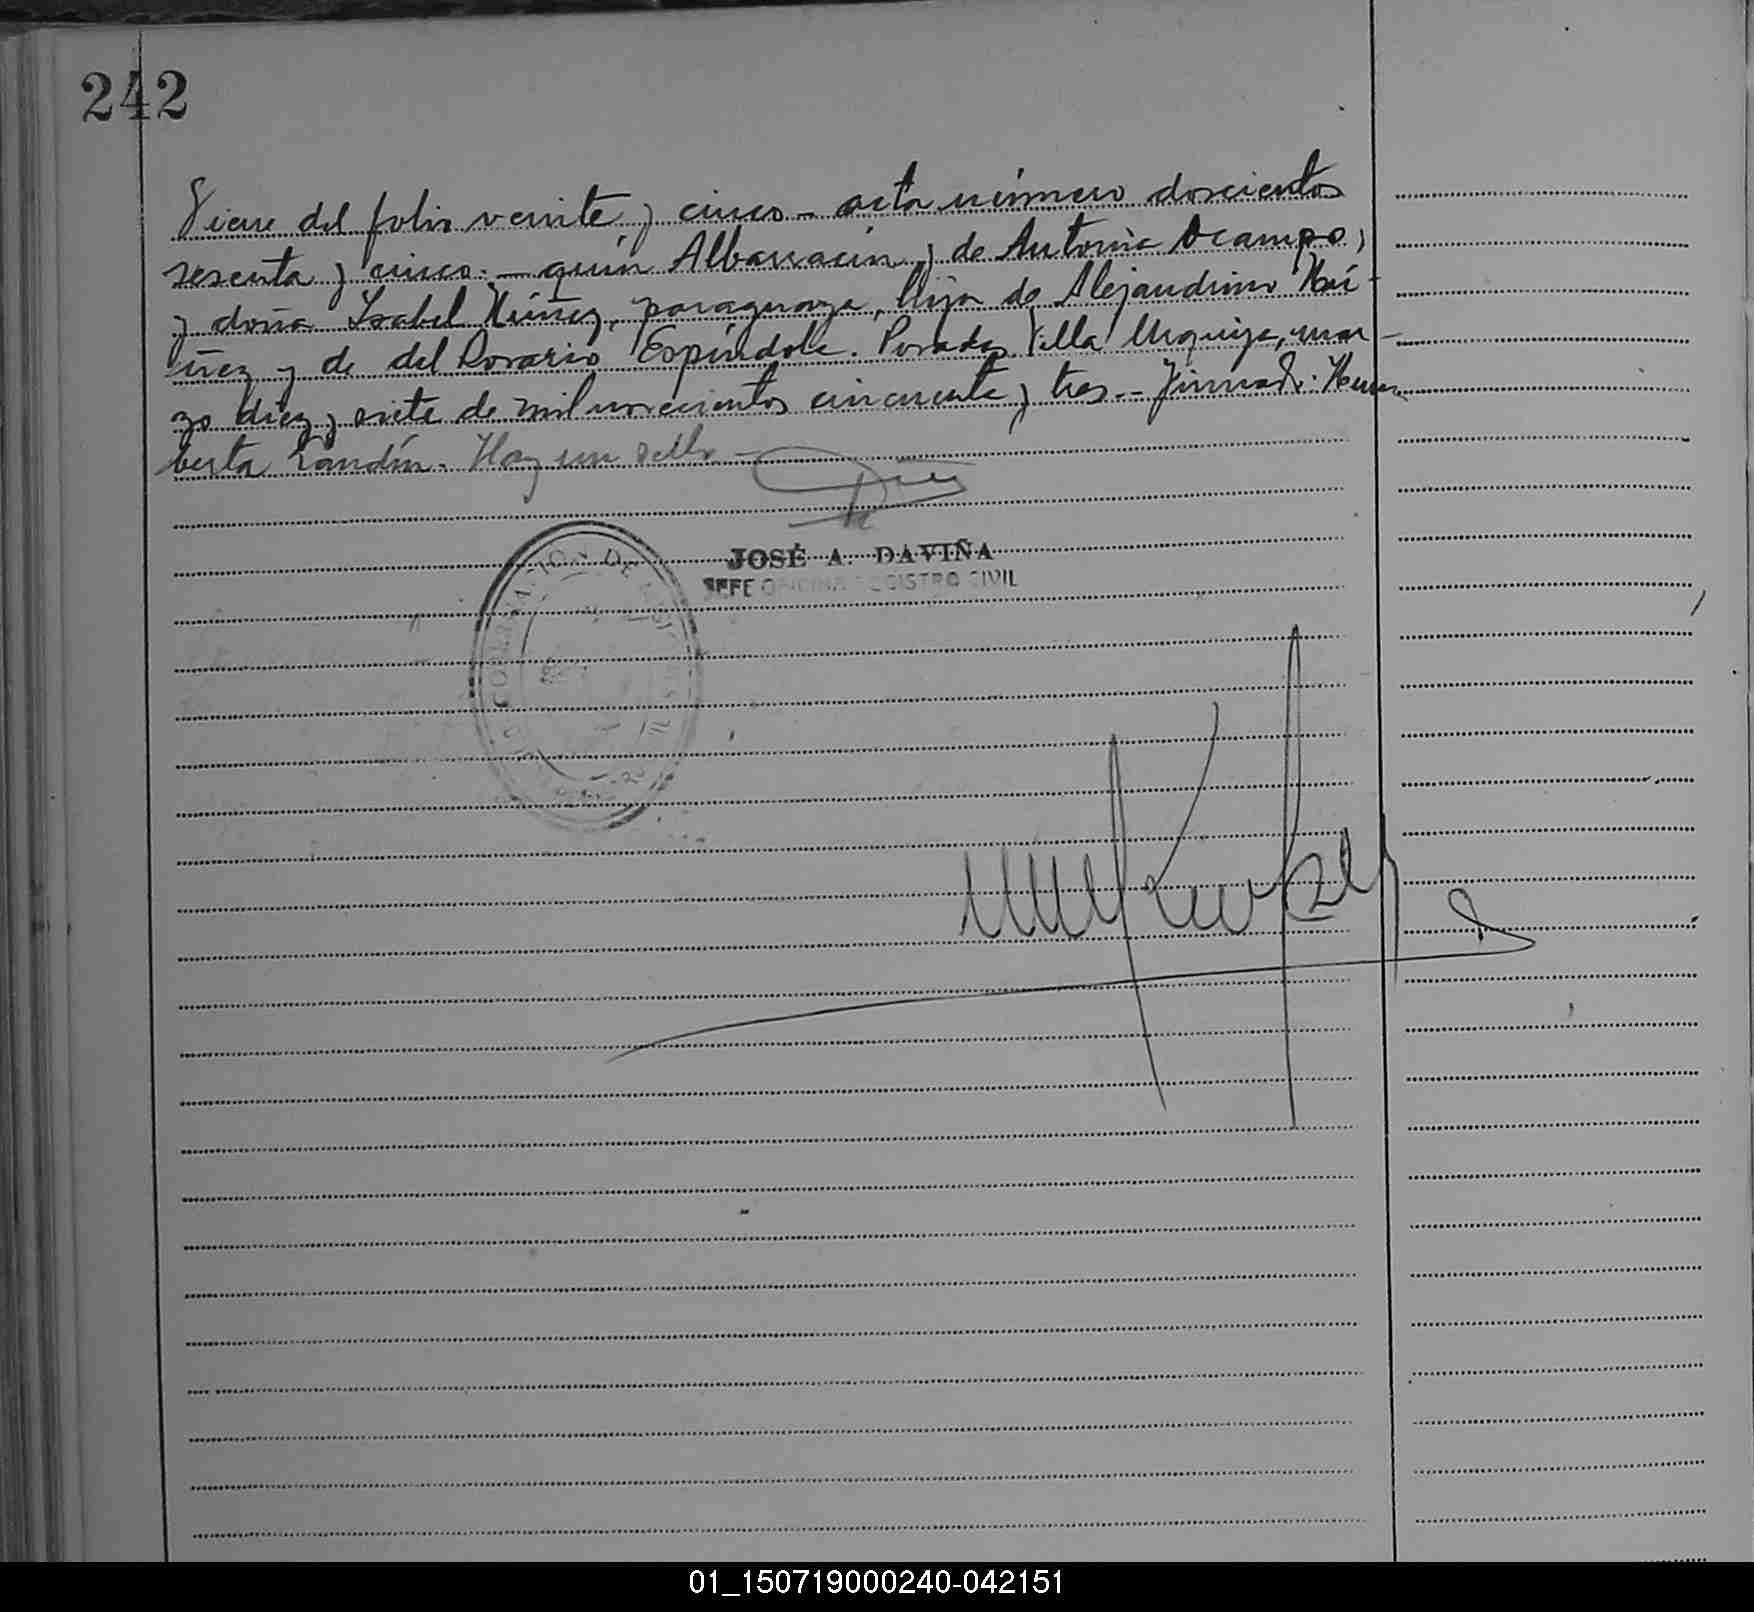 242
Viene del folio veinte y cinco - acta número doscientos
sesenta y cinco. - quin Albarracin y de Antonia Ocampo,
y doña Isabel Núñez, paraguaya, hija de Alejandrino Nú-
ñez y de del Rosario Espíndola. Posadas Villa Urquiza, mar-
zo diez y siete de mil novecientos cincuenta y tres.- Firmado:
berta Landin. Hay un sello -
JOSÉ A. DAVIÑA
JEFE OFICINA REGISTRO CIVIL
01_150719000240-042151